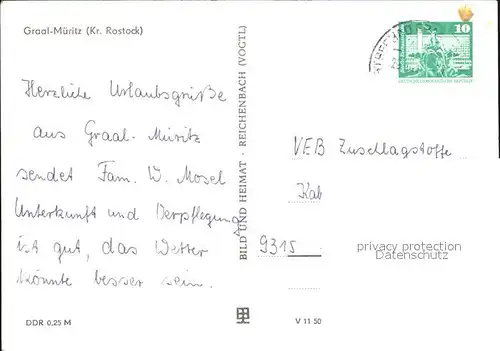 Graal-Müritz (Kr. Rostock)
Herzliche Urlaubsgrüße
aus Graal-Müritz
sendet Fam. W. Mosel
Unterkunft und Verpflegung
ist gut, das Wetter
könnte besser sein.
DDR 0,25 M
BILD UND HEIMAT · REICHENBACH (VOGTL)
V 11 50
10
VEB Zuschlagstoffe
Kab
9315
privacy protection
Datenschutz